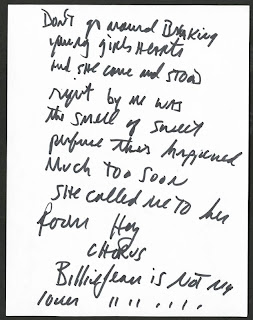 Don't go around Breaking
young girls Hearts
and she came and stood
right by me was
the smell of sweet
perfume this happened
Much too soon
she called me to her
Room Hey
CHORUS
Billie Jean is not my
lover " " " "